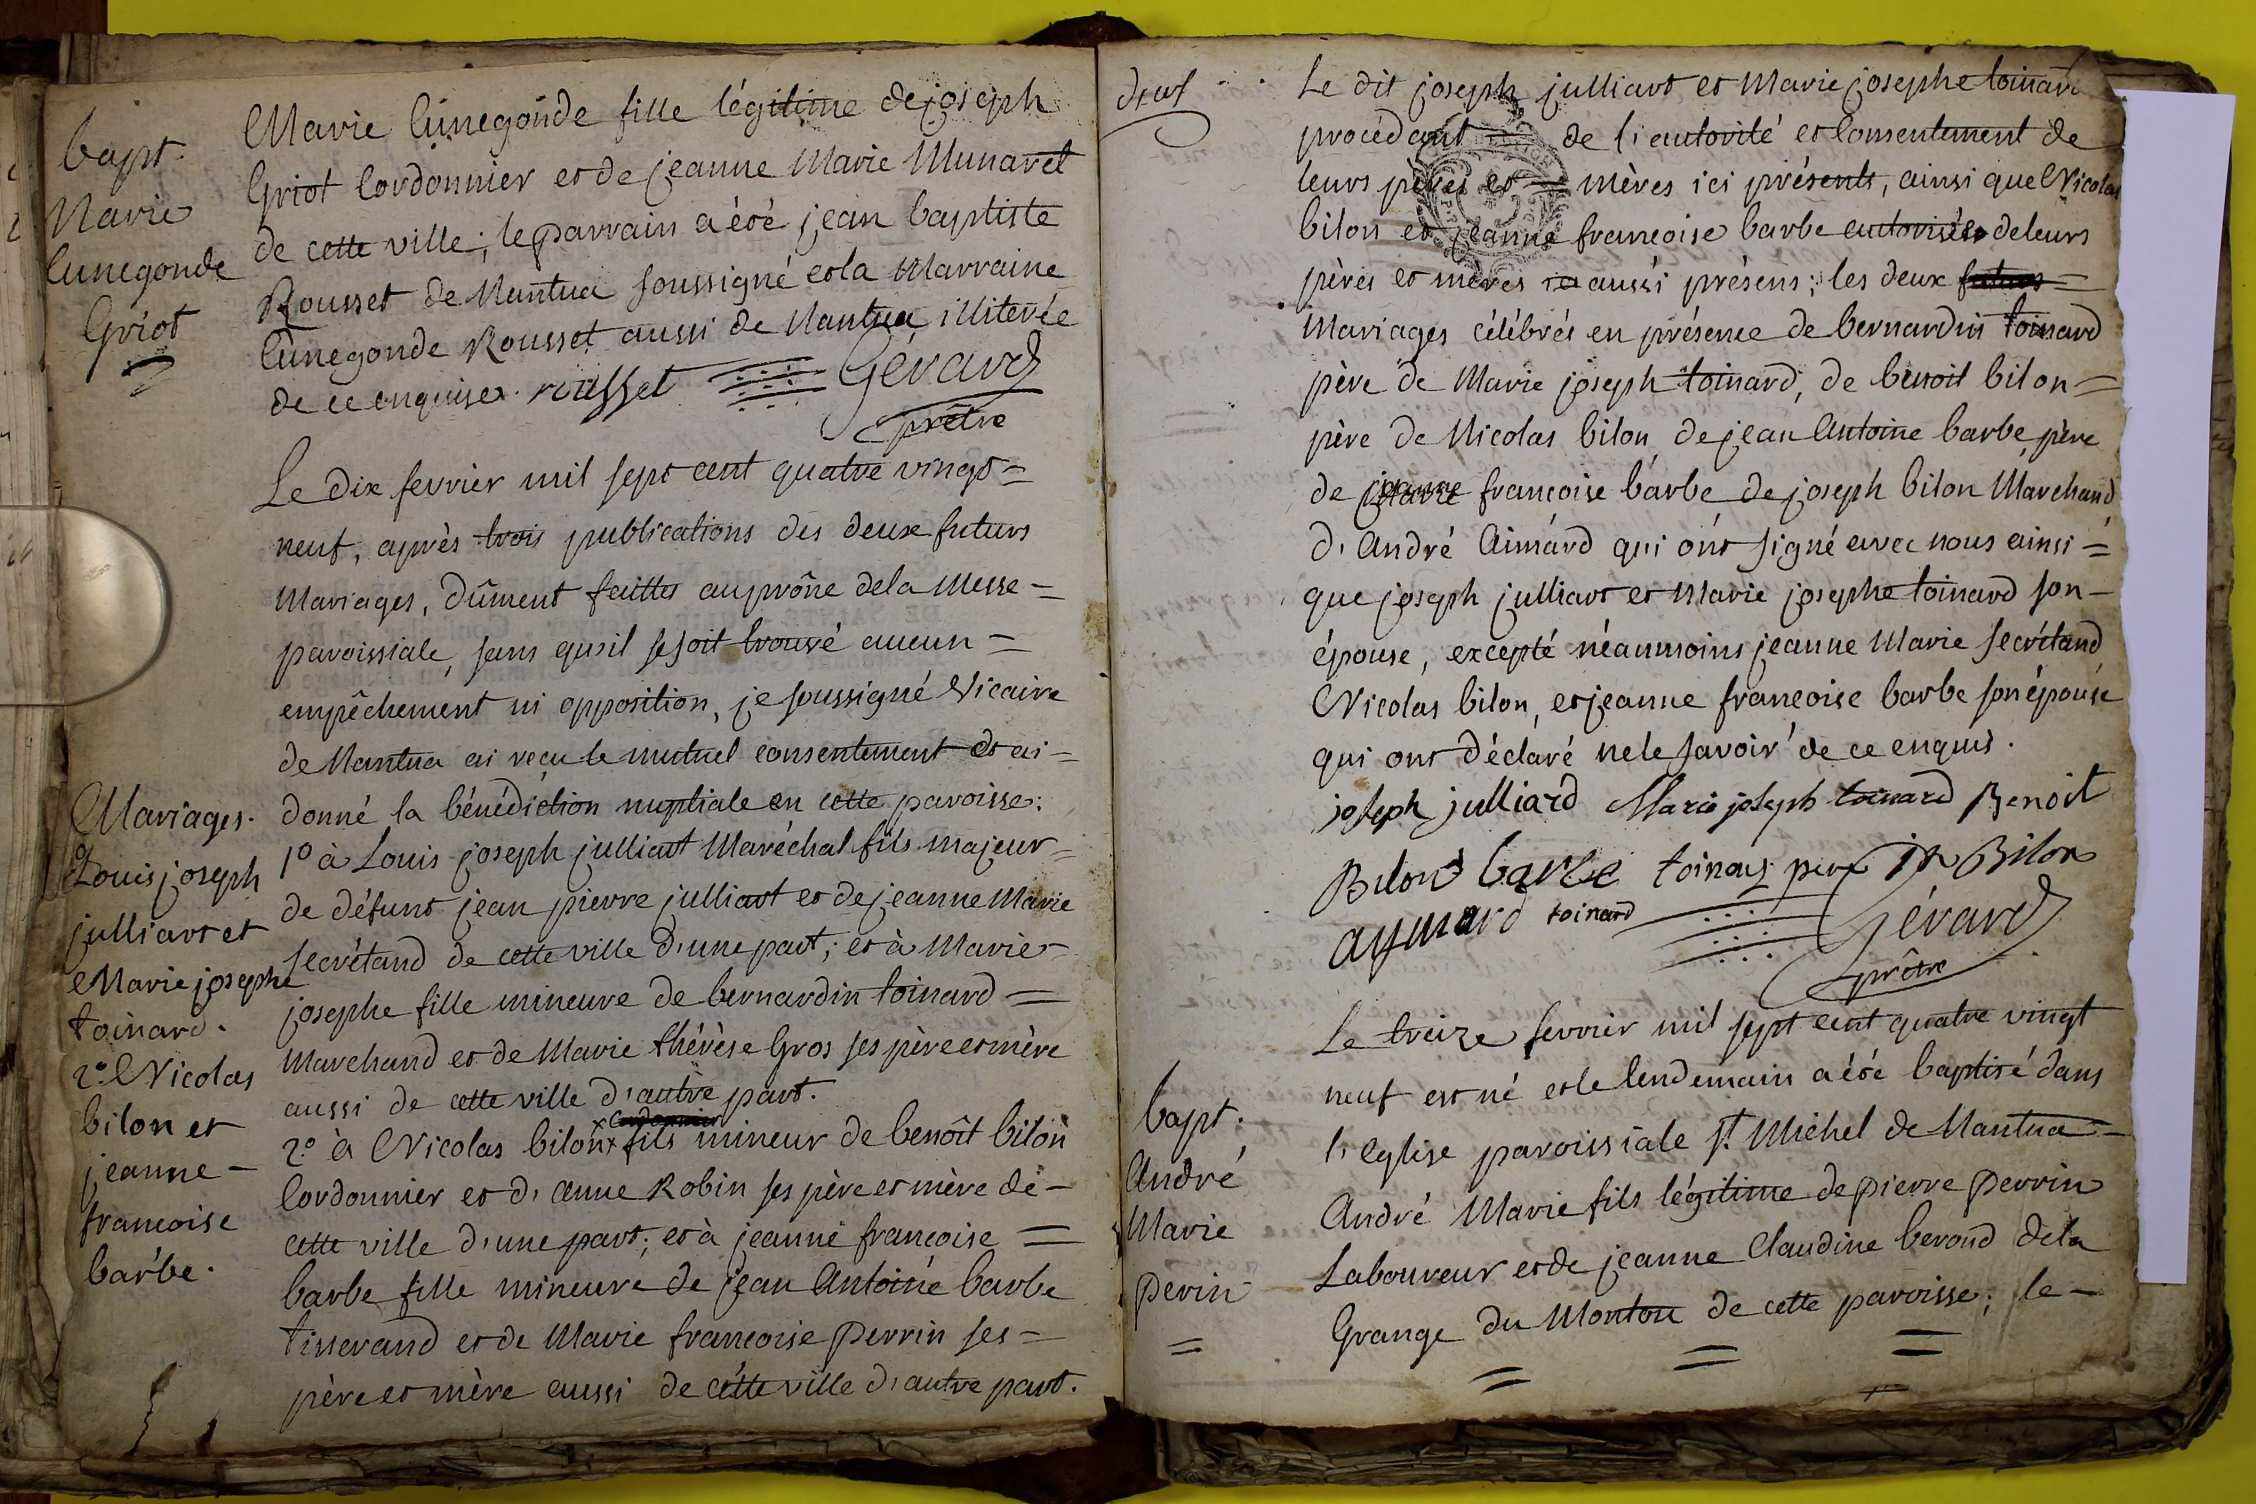 bapt.
Marie
Cunegonde
Griot
Marie Cunegonde fille légitime de joseph
Griot Cordonnier et de jeanne Marie Munaret
de cette ville; le parrain a été jean baptiste
Rousset de Nantua soussigné et la Marraine
Cunegonde Rousset aussi de Nantua illiterée
de ce enquise. rousset Gérard
prêtre
Le dix fevrier mil sept cent quatre vingt =
neuf, après trois publications des deux futurs
Mariages, dûment faittes au prône de la Messe =
paroissiale, sans qu'il se soit trouvé aucun =
empêchement ni opposition, je soussigné Vicaire
de Nantua ai reçu le mutuel consentement et ai =
donné la bénédiction nuptiale en cette paroisse:
1º à Louis joseph julliart Maréchal fils majeur =
de défunt jean pierre julliart et de jeanne Marie
secrétand de cette ville d'une part; et à Marie =
josephe fille mineure de bernardin toinard =
Marchand et de Marie thérèse Gros ses père et mère
aussi de cette ville d'autre part.
2º à Nicolas bilon x fils mineur de benoît bilon
Cordonnier et d'anne Robin ses père et mère de -
cette ville d'une part; et à jeanne francoise =
barbe fille mineure de jean Antoine barbe
tisserand et de Marie francoise Perrin ses =
père et mère aussi de cette ville d'autre part.
Mariages.
Louis joseph
julliart et
Marie josephe
toinard.
2º Nicolas
bilon et
jeanne -
francoise
barbe.
Le dit joseph julliart et Marie josephe toinard
procédant = de l'autorité et Consentement de
leurs pères et = mères ici présents, ainsi que Nicolas
bilon et jeanne francoise barbe autorisés de leurs
pères et mères ici aussi présens; les deux futurs =
Mariages célébrés en présence de bernardin toinard
père de Marie joseph toinard, de benoit bilon =
père de Nicolas bilon, de jean Antoine barbe père
de jeanne francoise barbe de joseph bilon Marchand
d'André Aimard qui ont signé avec nous ainsi =
que joseph julliart et Marie josephe toinard son -
épouse, excepté néanmoins jeanne Marie secrétand
Nicolas bilon, et jeanne francoise barbe son épouse
qui ont déclaré ne le savoir de ce enquis.
joseph julliard Marie joseph toinard Benoit
Bilon barbe toinard père Bilon
aymard toinard Gérard
prêtre
bapt.
André
Marie
Perin
=
Le treize fevrier mil sept cent quatre vingt
neuf est né et le lendemain a été baptisé dans
l'eglise paroissiale St. Michel de Nantua =
André Marie fils légitime de pierre Perrin
Laboureur et de jeanne Claudine berond de la
Grange du Monton de cette paroisse; le -